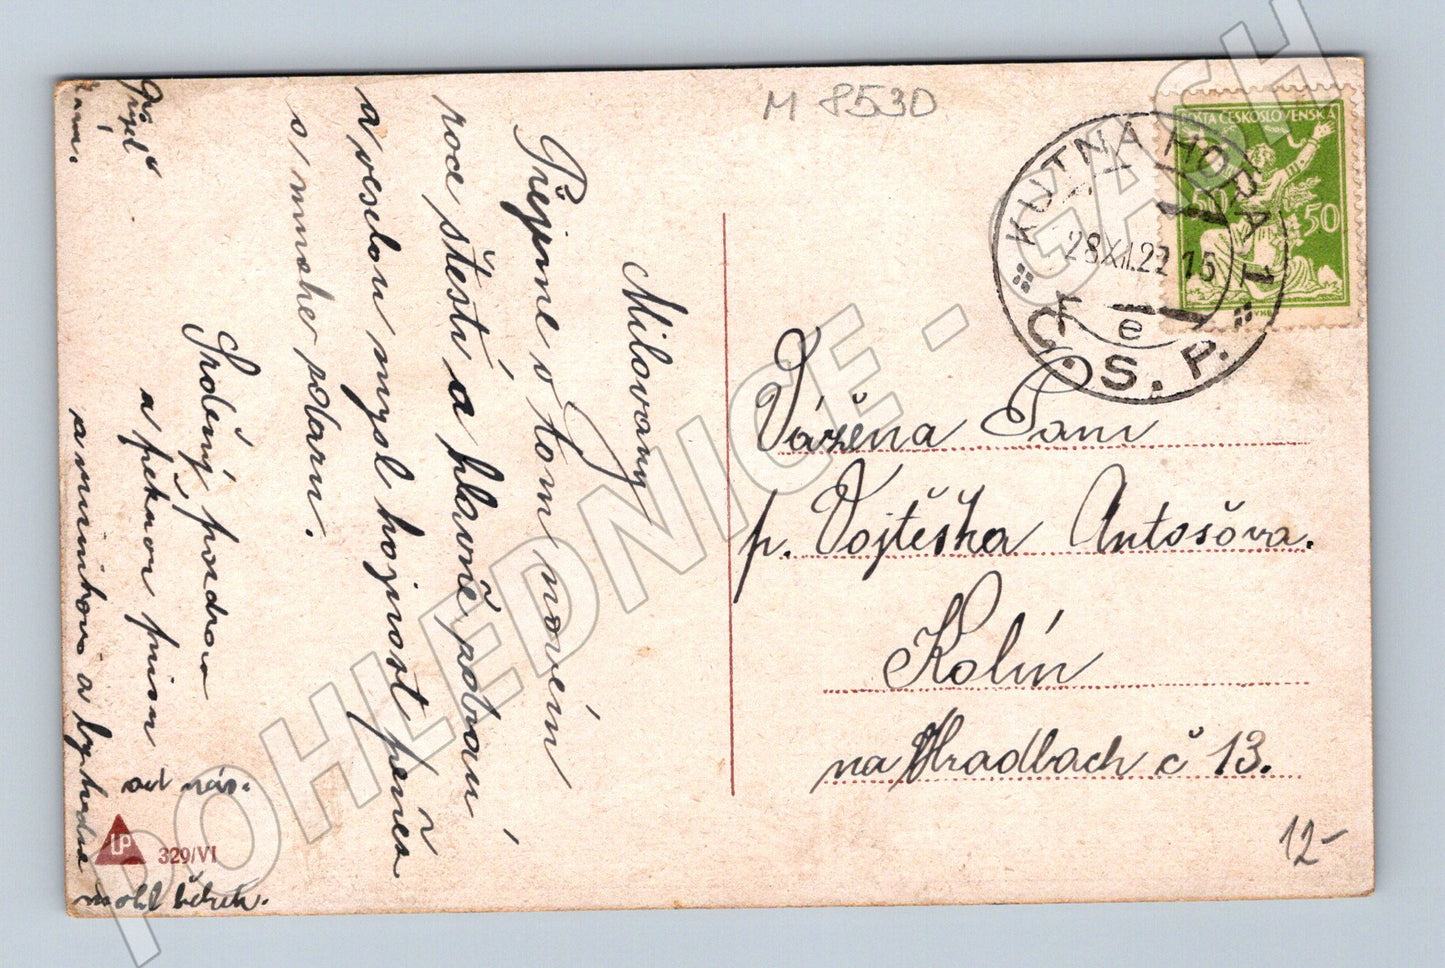 M 8530
POŠTA ČESKOSLOVENSKÁ
50 50
KUTNÁ HORA 1
28.XII.22 15
e
Č.S.P.
Milovany
Přejeme v tom novém
roce štěstí a hlavně, zdraví
a veselou mysl hojnost peněz
Srdečný pozdrav
a pěknou
od nás.
mohl
Vážena Paní
p. Vojtěška Antošova.
Kolín
na Hradbach č 13.
12-
LP
329/VI
POHLEDNICE - GASH